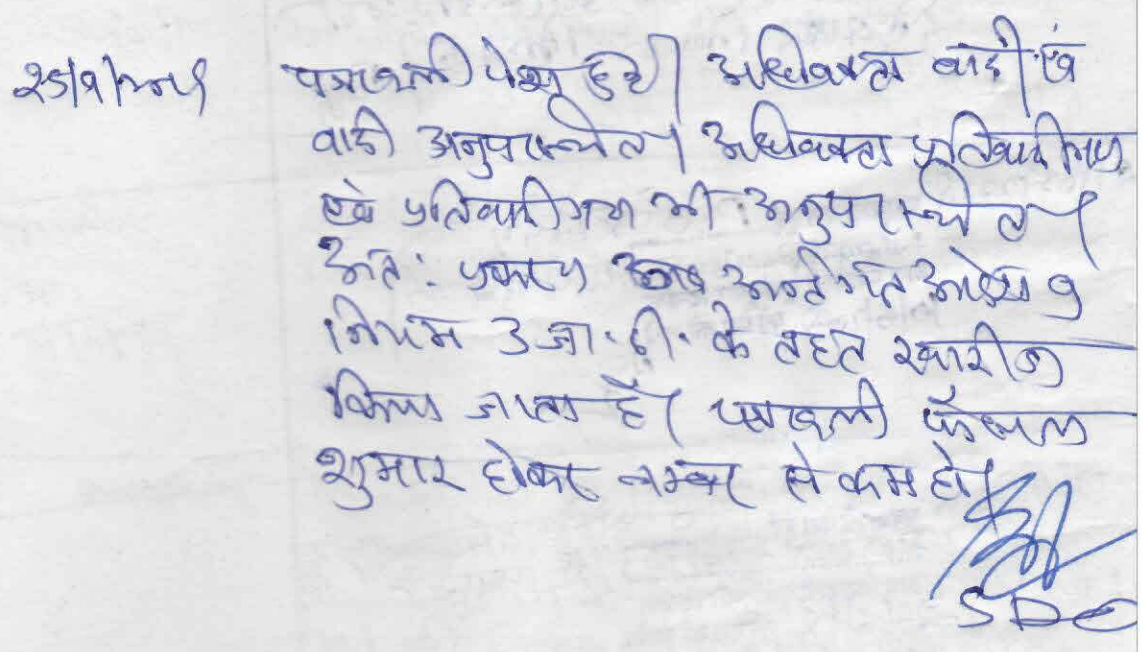 पत्रावली पेश हुई। अधिवक्ता वादी एवं
वादी अनुपस्थित। अधिवक्ता प्रतिवादीगण
एवं प्रतिवादीगण भी अनुपस्थित।
अतः प्रकरण अन्तर्गत आदेश 9
नियम 3 जा.दी. के तहत खारीज
किया जाता है। पत्रावली फैसल
शुमार होकर नम्बर से कम हो।
SDO